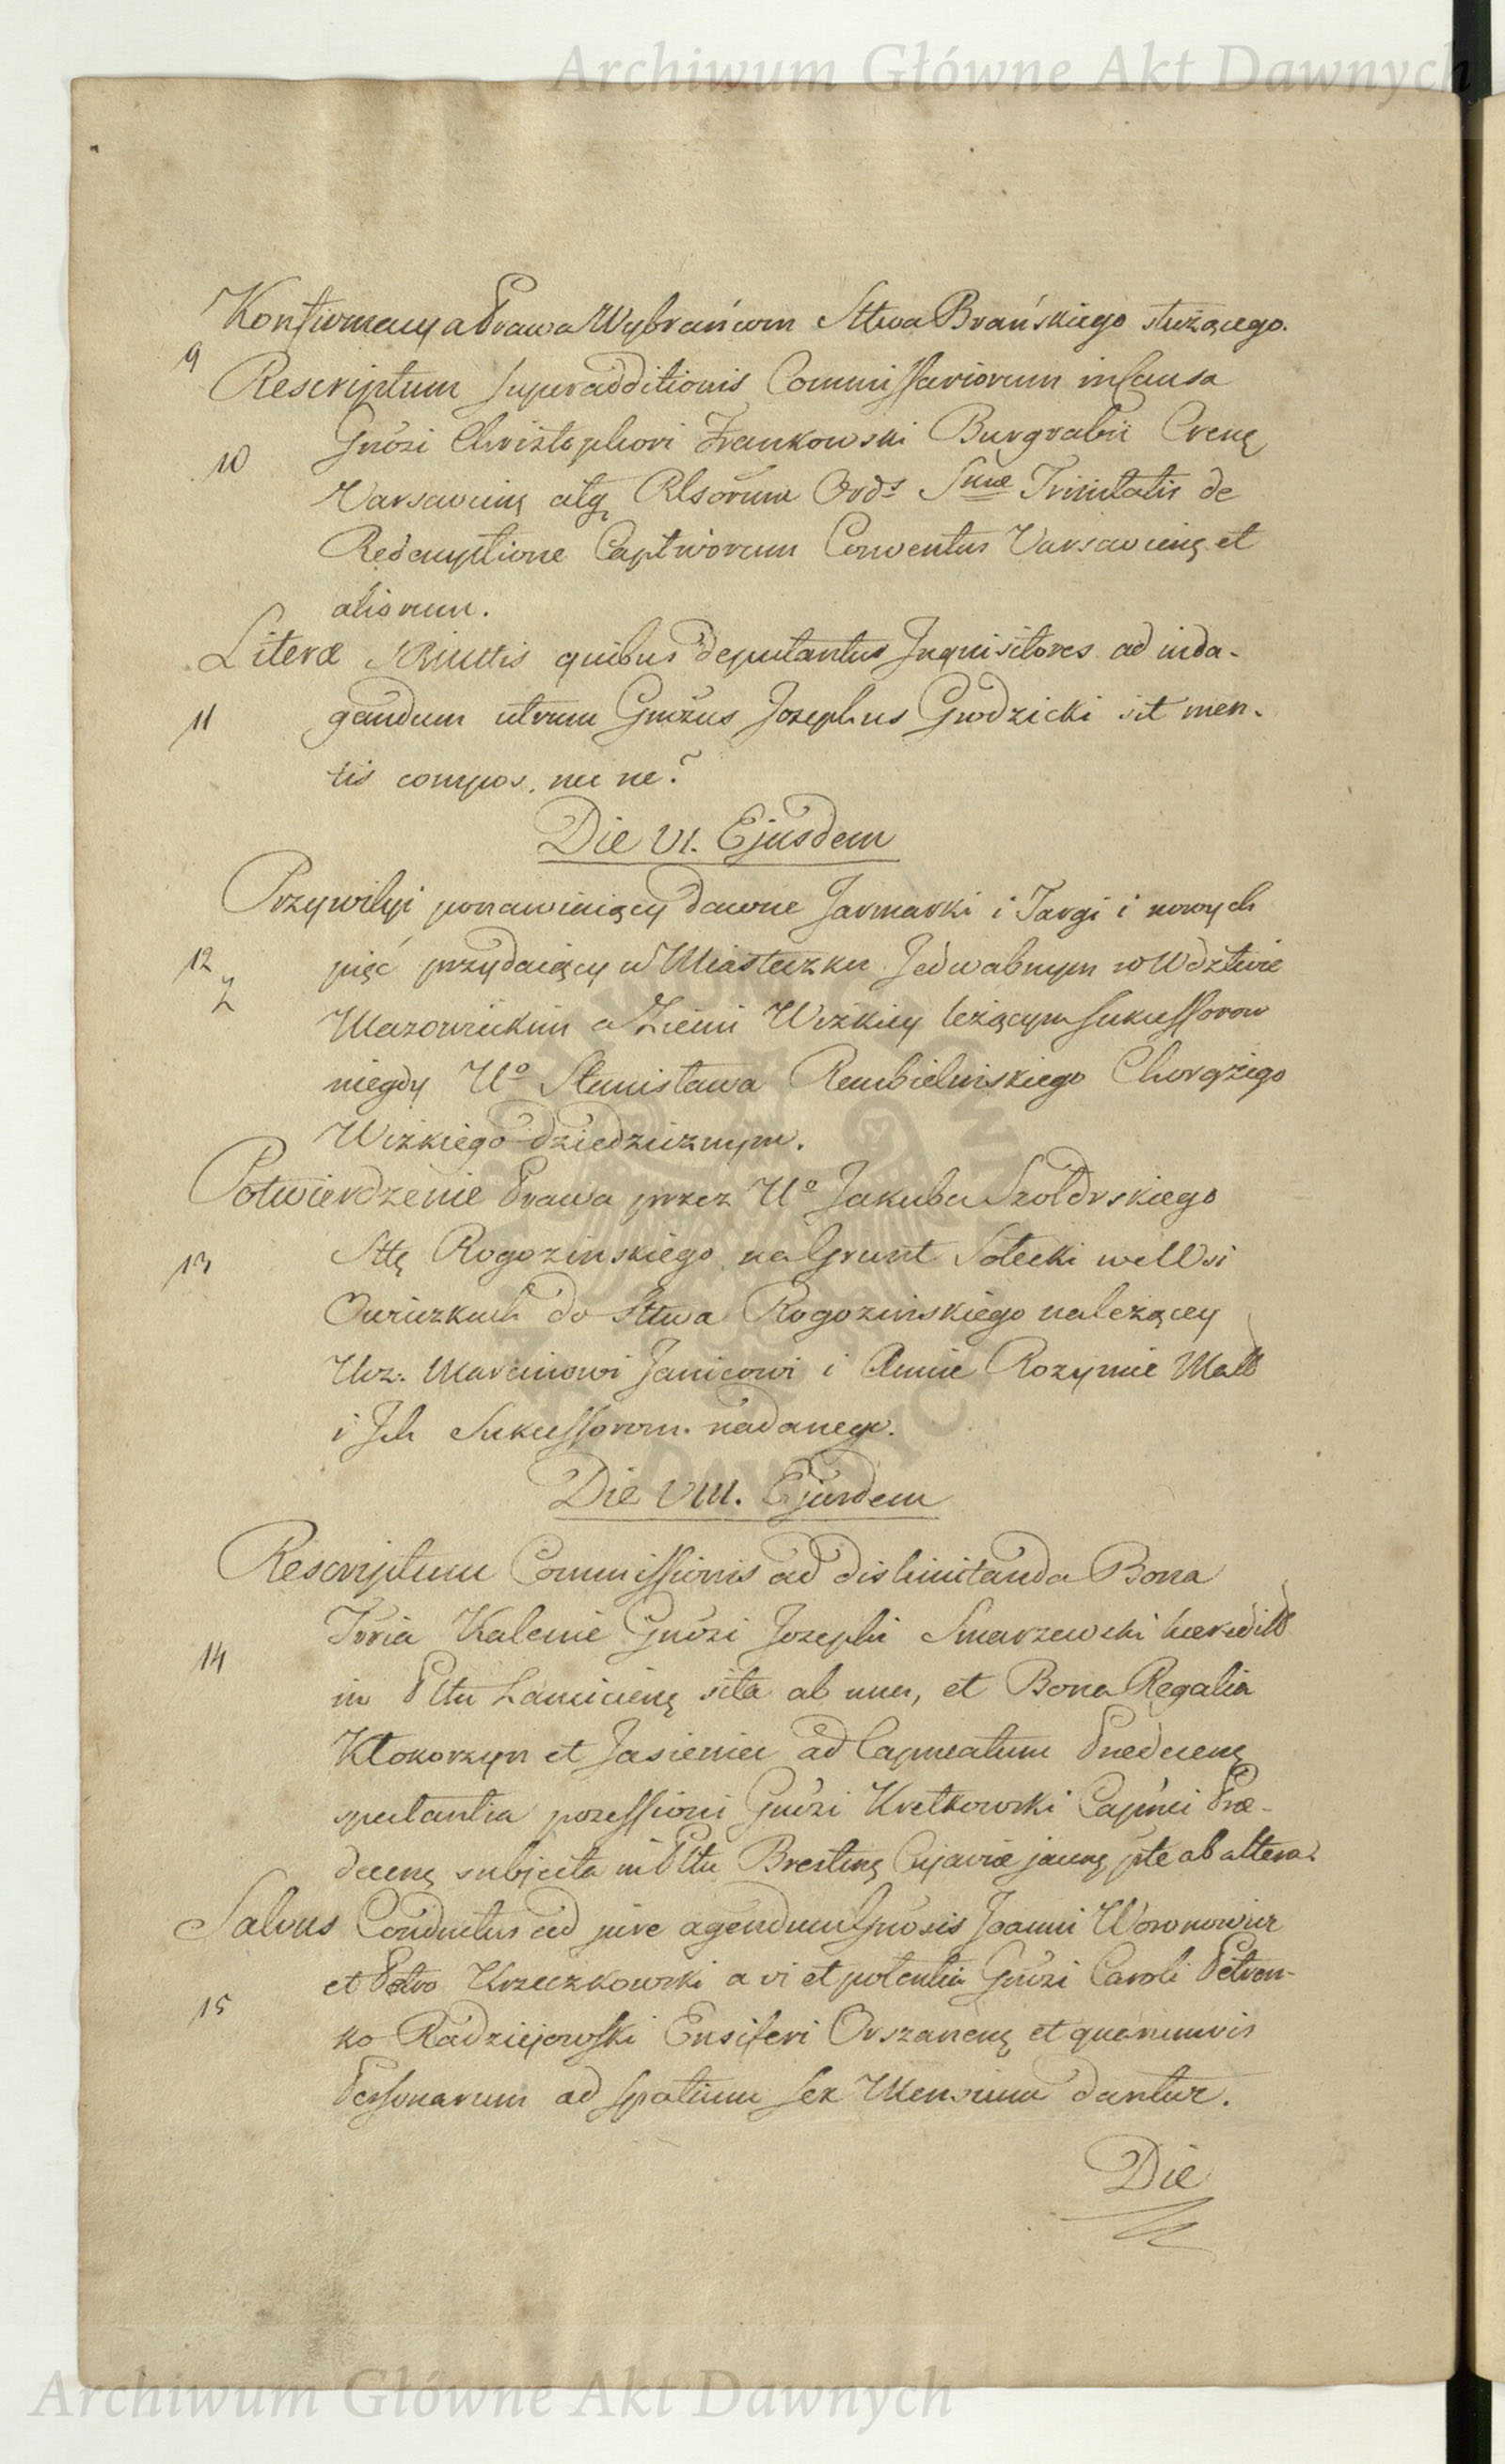 Archiwum Główne Akt Dawnych
Konfirmacya Prawa Wybrańcom Sttwa Brańskiego służącego.
9
Rescriptum superadditionis Commissariorum in Causa
10 Gnosi Christophori Frankowski Burgrabii Crenę
Varsavienę atq Rlsorum Ords Smæ Trinitatis de
Redemptione Captivorum Conventus Varsavienę et
aliorum.
Literæ quibus deputantur Inquisitores ad inda-
11 gandum utrum Gnosus Josephus Grodzicki sit men-
tis compos, nec ne?
Die VI. Ejusdem
Przywiley ponawiaiący dawne Jarmarki i Targi i nowych
12 pięć przydaiący w Miasteczku Jedwabnym w Wdztwie
Mazowieckim a Ziemi Wizkiey leżącym Sukcessorow
niegdy Uo Stanisława Rembielinskiego Chorążego
Wizkiego dziedzicznym.
Potwierdzenie Prawa przez Uo Jakuba Szołdrskiego
13 Sttę Rogozinskiego na Grunt Sołecki we Wsi
do Sttwa Rogozinskiego należącey
Urz. Marcinowi Janicowi i Annie Rozynie Małż
i Ich Sukcessorom nadanego.
Die VIII. Ejusdem
Rescriptum Commissionis ad dislimitanda Bona
Kalenie Gnosi Josephi Smarzewski
14 in Pttu Lancicienę sita ab una, et Bona Regalia
Kłokorzyn et Jasieniec ad Capneatum Prædecenę
spectantia possessioni Gnosi Kretkowski Capnei Præ-
decenę subjecta in Pttu Brestenę Cujaviæ jacenę pte ab altera.
Salvus Conductus ad jure agendum Gnosis Joanni Woronowicz
et Petro Krzeczkowski a vi et potentia Gnosi Caroli Pitren-
15 ko Radziejowski Ensiferi Orszanenę et quarumvis
Personarum ad spatium sex Mensium dantur.
Die
Archiwum Główne Akt Dawnych